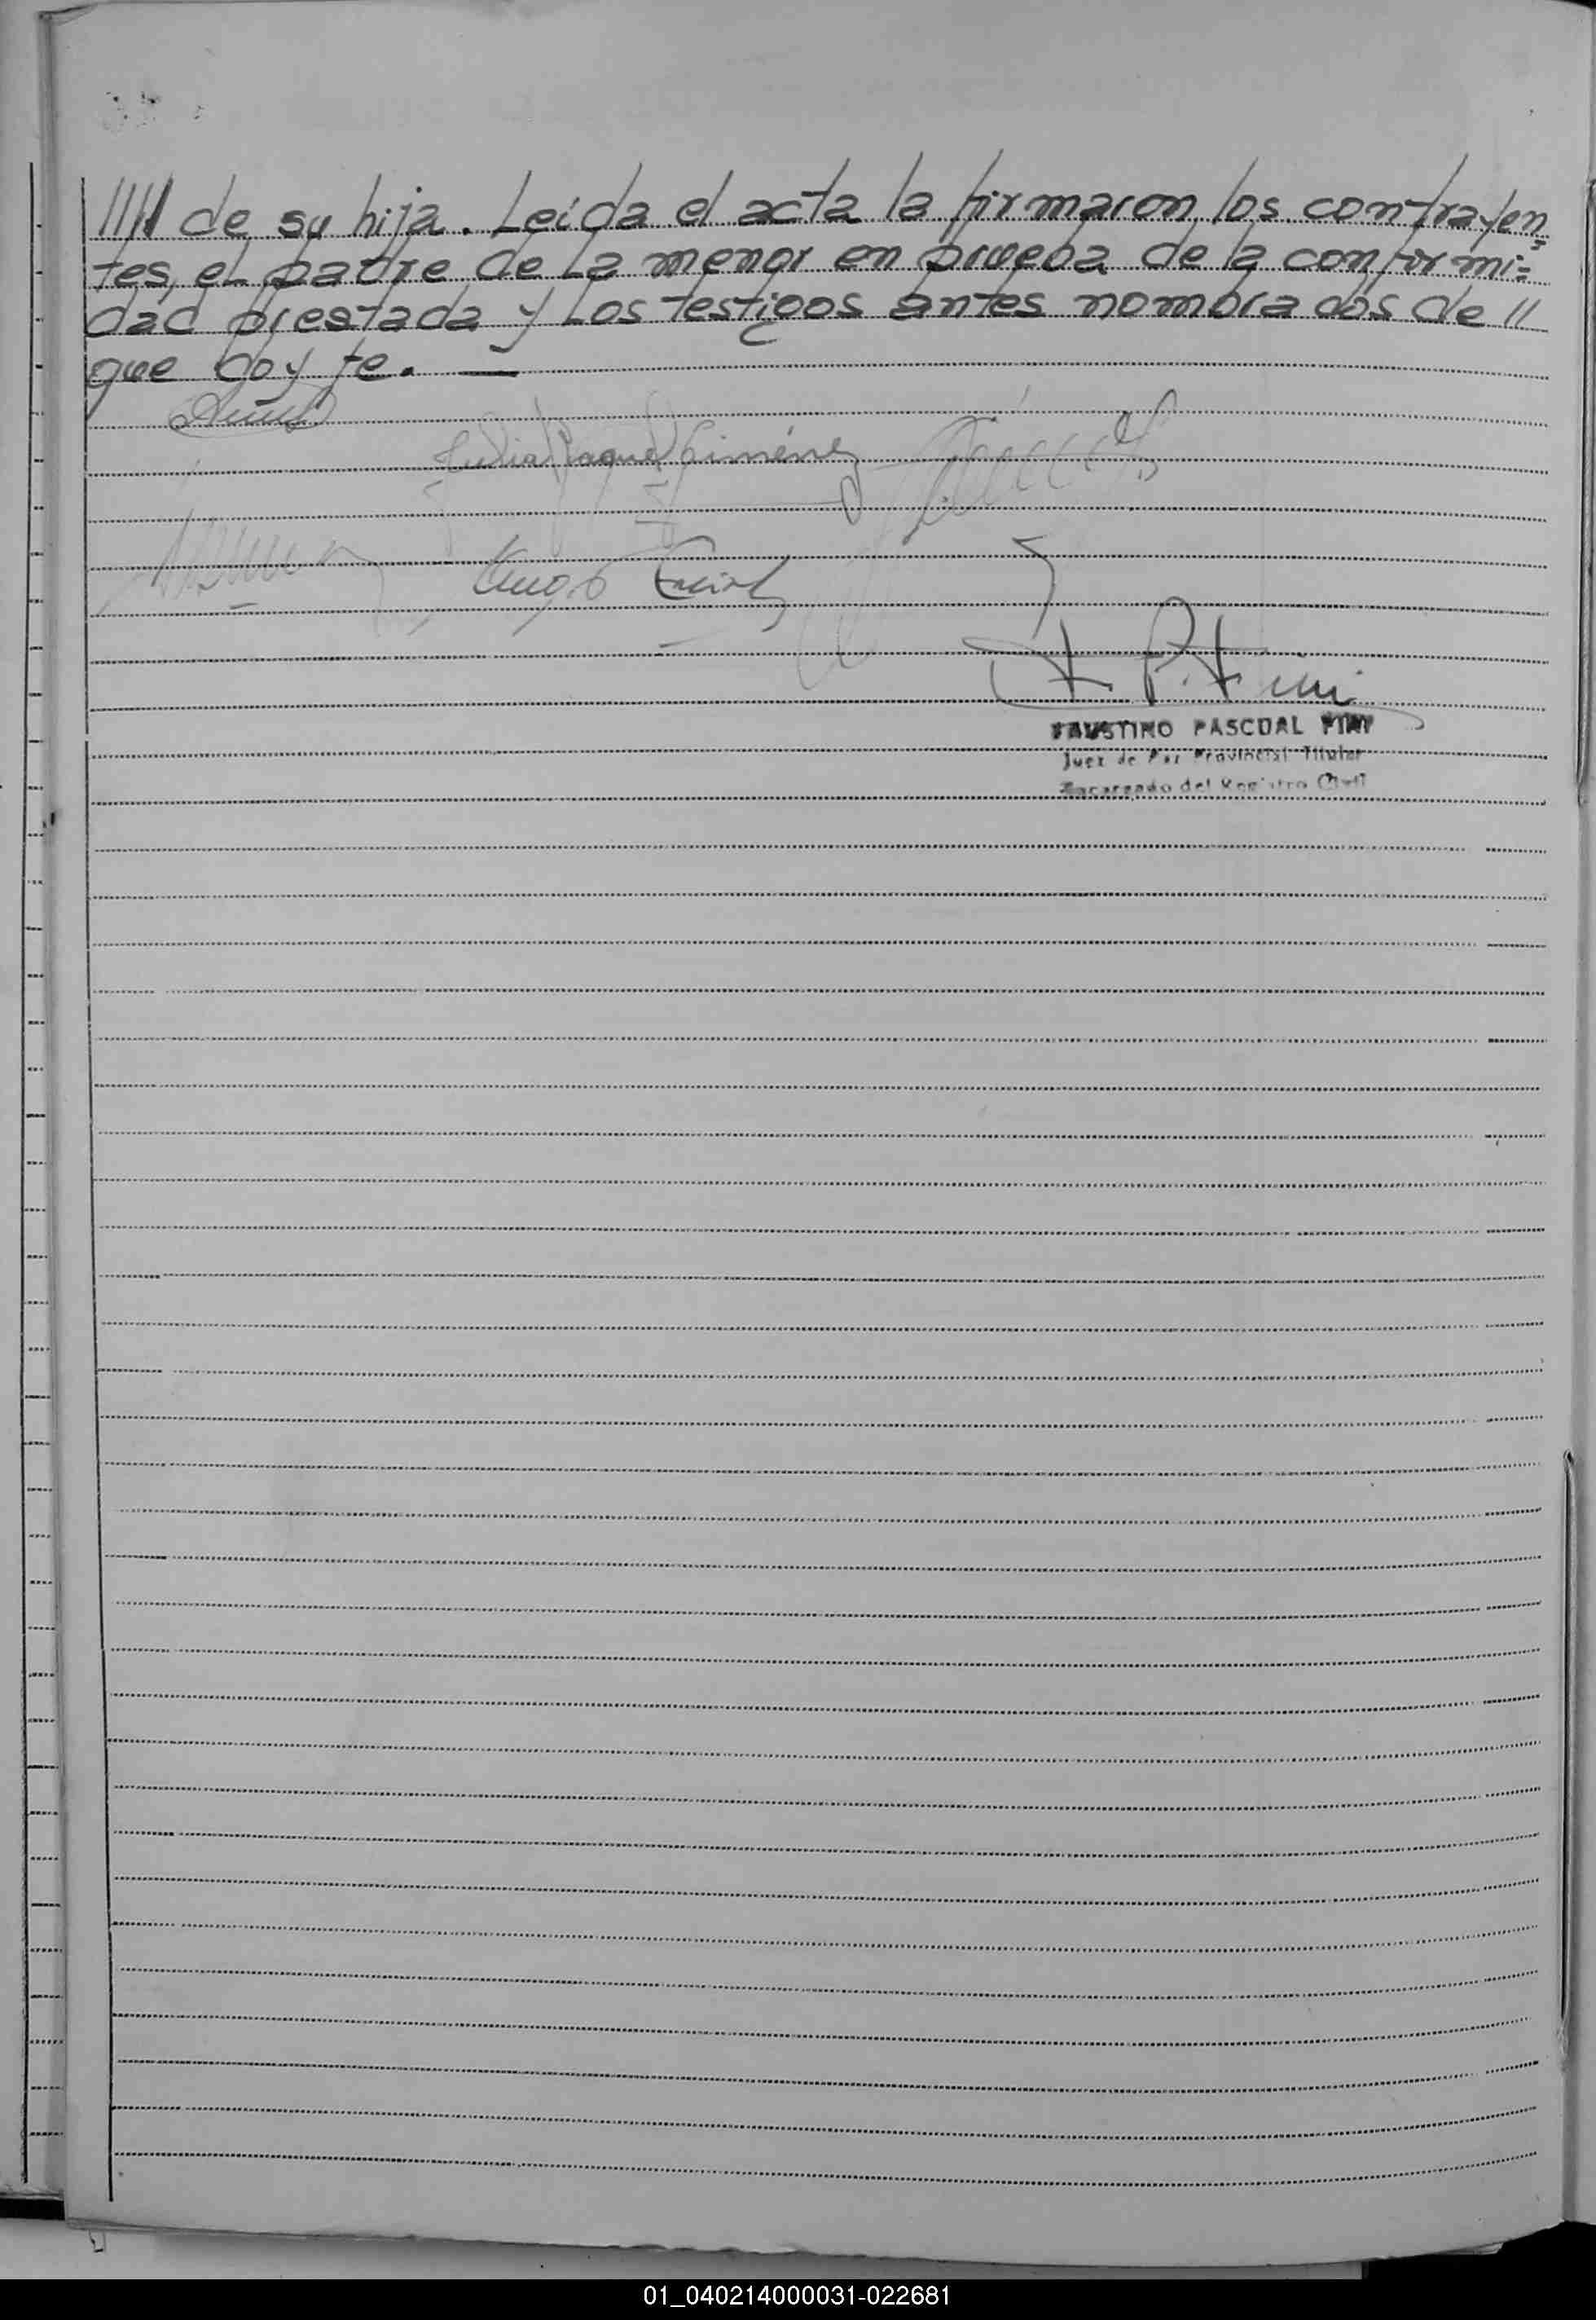 //// de su hija. Leída el acta la firmaron los contrayen=
tes, el padre de la menor en prueba de la conformi=
dad prestada y los testigos antes nombrados de //
que doy fe. —
Raquel Giménez
Hugo
F. P. Pini
FAUSTINO PASCUAL PINI
Juez de Paz Provincial Titular
Encargado del Registro Civil
01_040214000031-022681